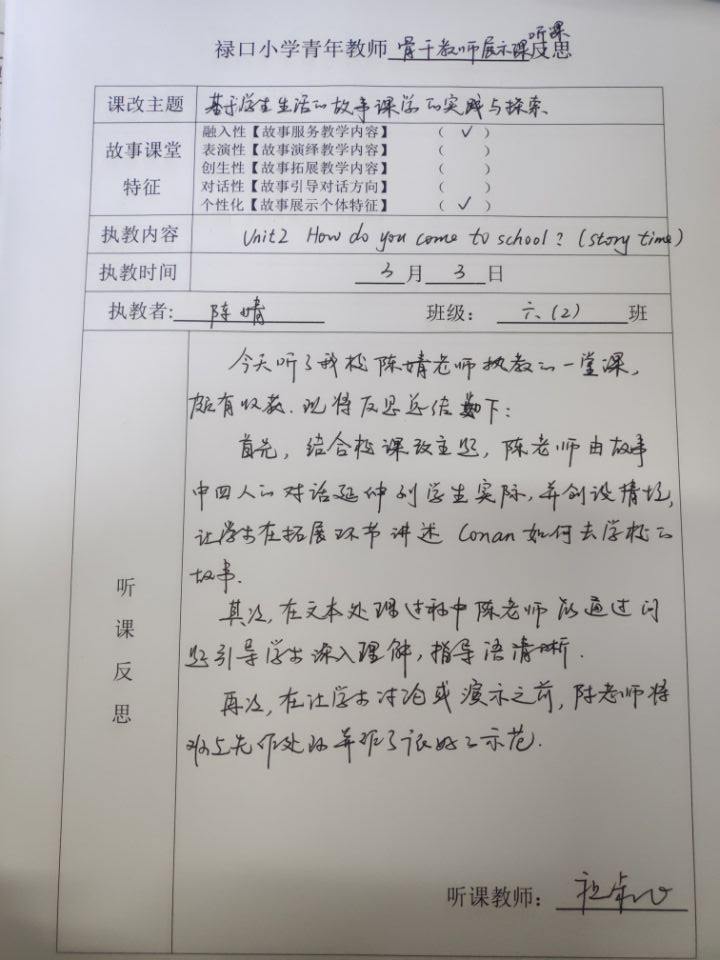 听课
禄口小学青年教师 骨干教师展示课反思
课改主题 基于学生生活的故事课堂的实践与探索
故事课堂特征
融入性【故事服务教学内容】 （ ✓ ）
表演性【故事演绎教学内容】 （ ）
创生性【故事拓展教学内容】 （ ）
对话性【故事引导对话方向】 （ ）
个性化【故事展示个体特征】 （ ✓ ）
执教内容 Unit2 How do you come to school? (story time)
执教时间 3月3日
执教者: 陈婧 班级: 六（2）班
听课反思
今天听了我校陈婧老师执教的一堂课，
颇有收获.现将反思总结如下：
首先，结合校课改主题，陈老师由故事
中四人的对话延伸到学生实际，并创设情境，
让学生在拓展环节讲述 Conan 如何去学校的
故事.
其次，在文本处理过程中陈老师能通过问
题引导学生深入理解，指导语清晰.
再次，在让学生讨论或演示之前，陈老师将
难点先作处理并作了很好的示范.
听课教师: